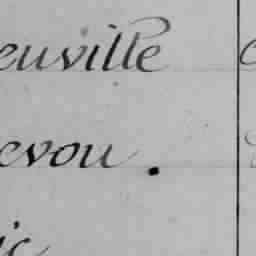 euville
evou.
ic